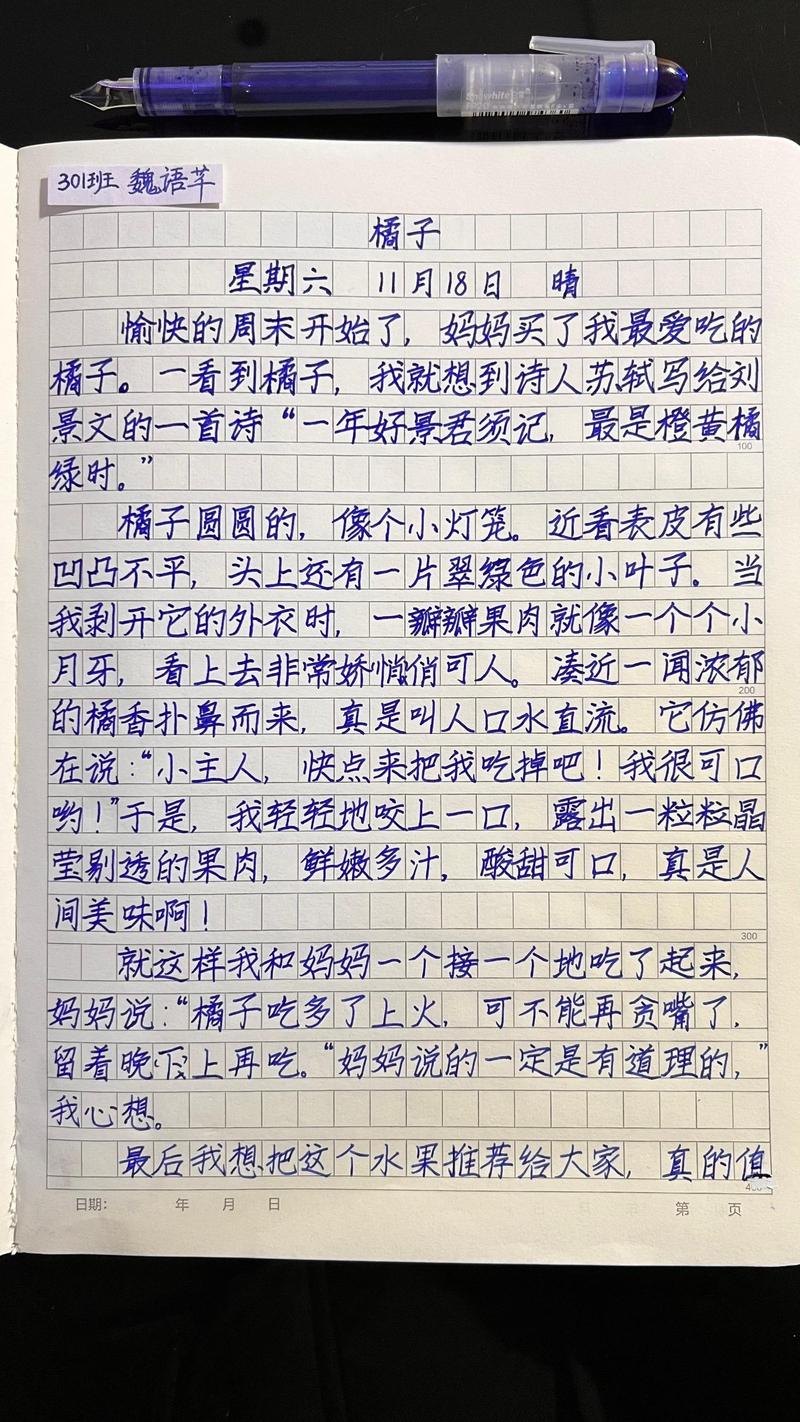 301班 魏语芊
橘子
星期六 11月18日 晴
愉快的周末开始了,妈妈买了我最爱吃的
橘子。一看到橘子,我就想到诗人苏轼写给刘
景文的一首诗“一年好景君须记,最是橙黄橘
100
绿时。”
橘子圆圆的,像个小灯笼。近看表皮有些
凹凸不平,头上还有一片翠绿色的小叶子。当
我剥开它的外衣时,一瓣瓣果肉就像一个个小
月牙,看上去非常娇悄俏可人。凑近一闻浓郁
200
的橘香扑鼻而来,真是叫人口水直流。它仿佛
在说:“小主人,快点来把我吃掉吧!我很可口
哟!”于是,我轻轻地咬上一口,露出一粒粒晶
莹剔透的果肉,鲜嫩多汁,酸甜可口,真是人
间美味啊!
300
就这样我和妈妈一个接一个地吃了起来,
妈妈说:“橘子吃多了上火,可不能再贪嘴了,
留着晚下上再吃。“妈妈说的一定是有道理的,”
我心想。
最后我想把这个水果推荐给大家,真的值
日期: 年 月 日 第 页